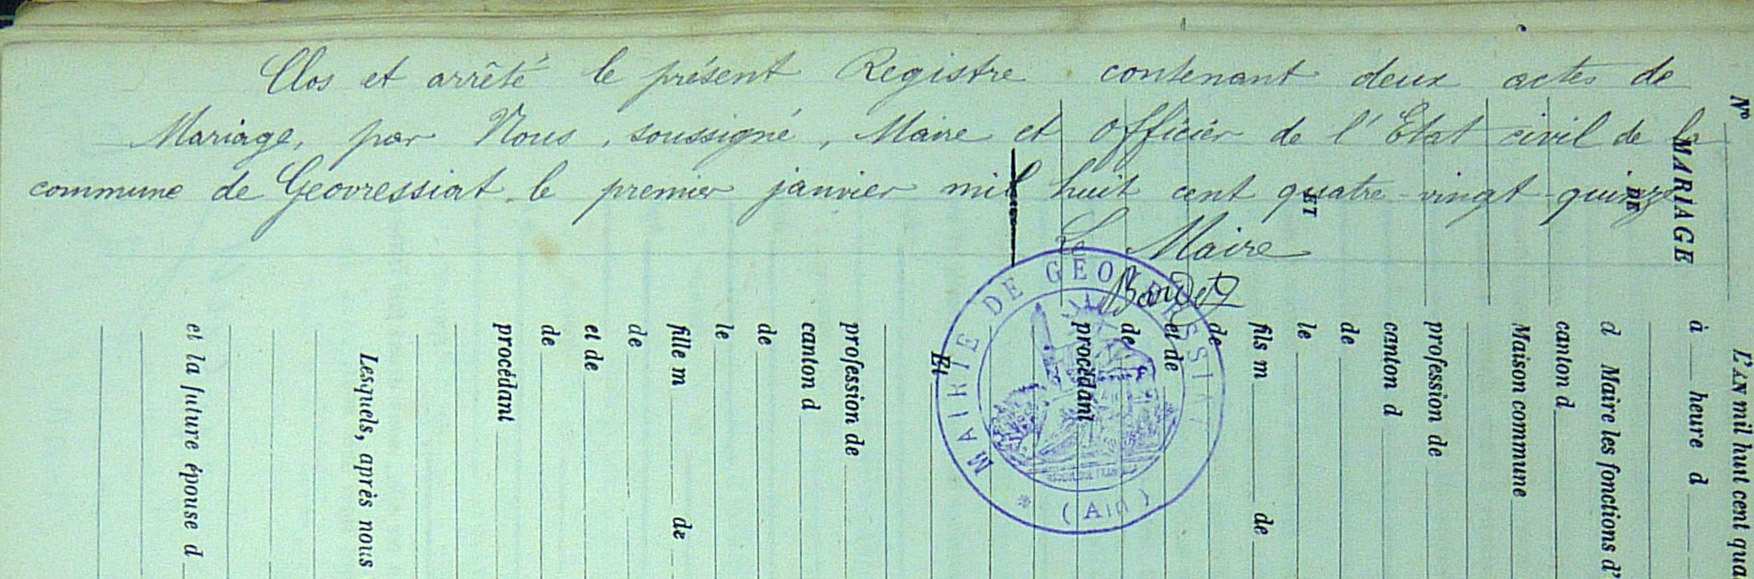 Clos et arrêté le présent Registre contenant deux actes de
Mariage, par Nous, soussigné, Maire et Officier de l'Etat civil de la
commune de Geovressiat le premier janvier mil huit cent quatre-vingt quinze
Le Maire
MAIRIE DE GEOVRESSIAT
* (Ain)
N°
MARIAGE
DE
ET
L'AN mil huit cent qua
à heure d
d Maire les fonctions d'
canton d
Maison commune
profession de
canton d
de
le
fils m de
de
et de
de
procédant
Et
profession de
canton d
de
le
fille m de
de
et de
de
procédant
Lesquels, après nous
et la future épouse d